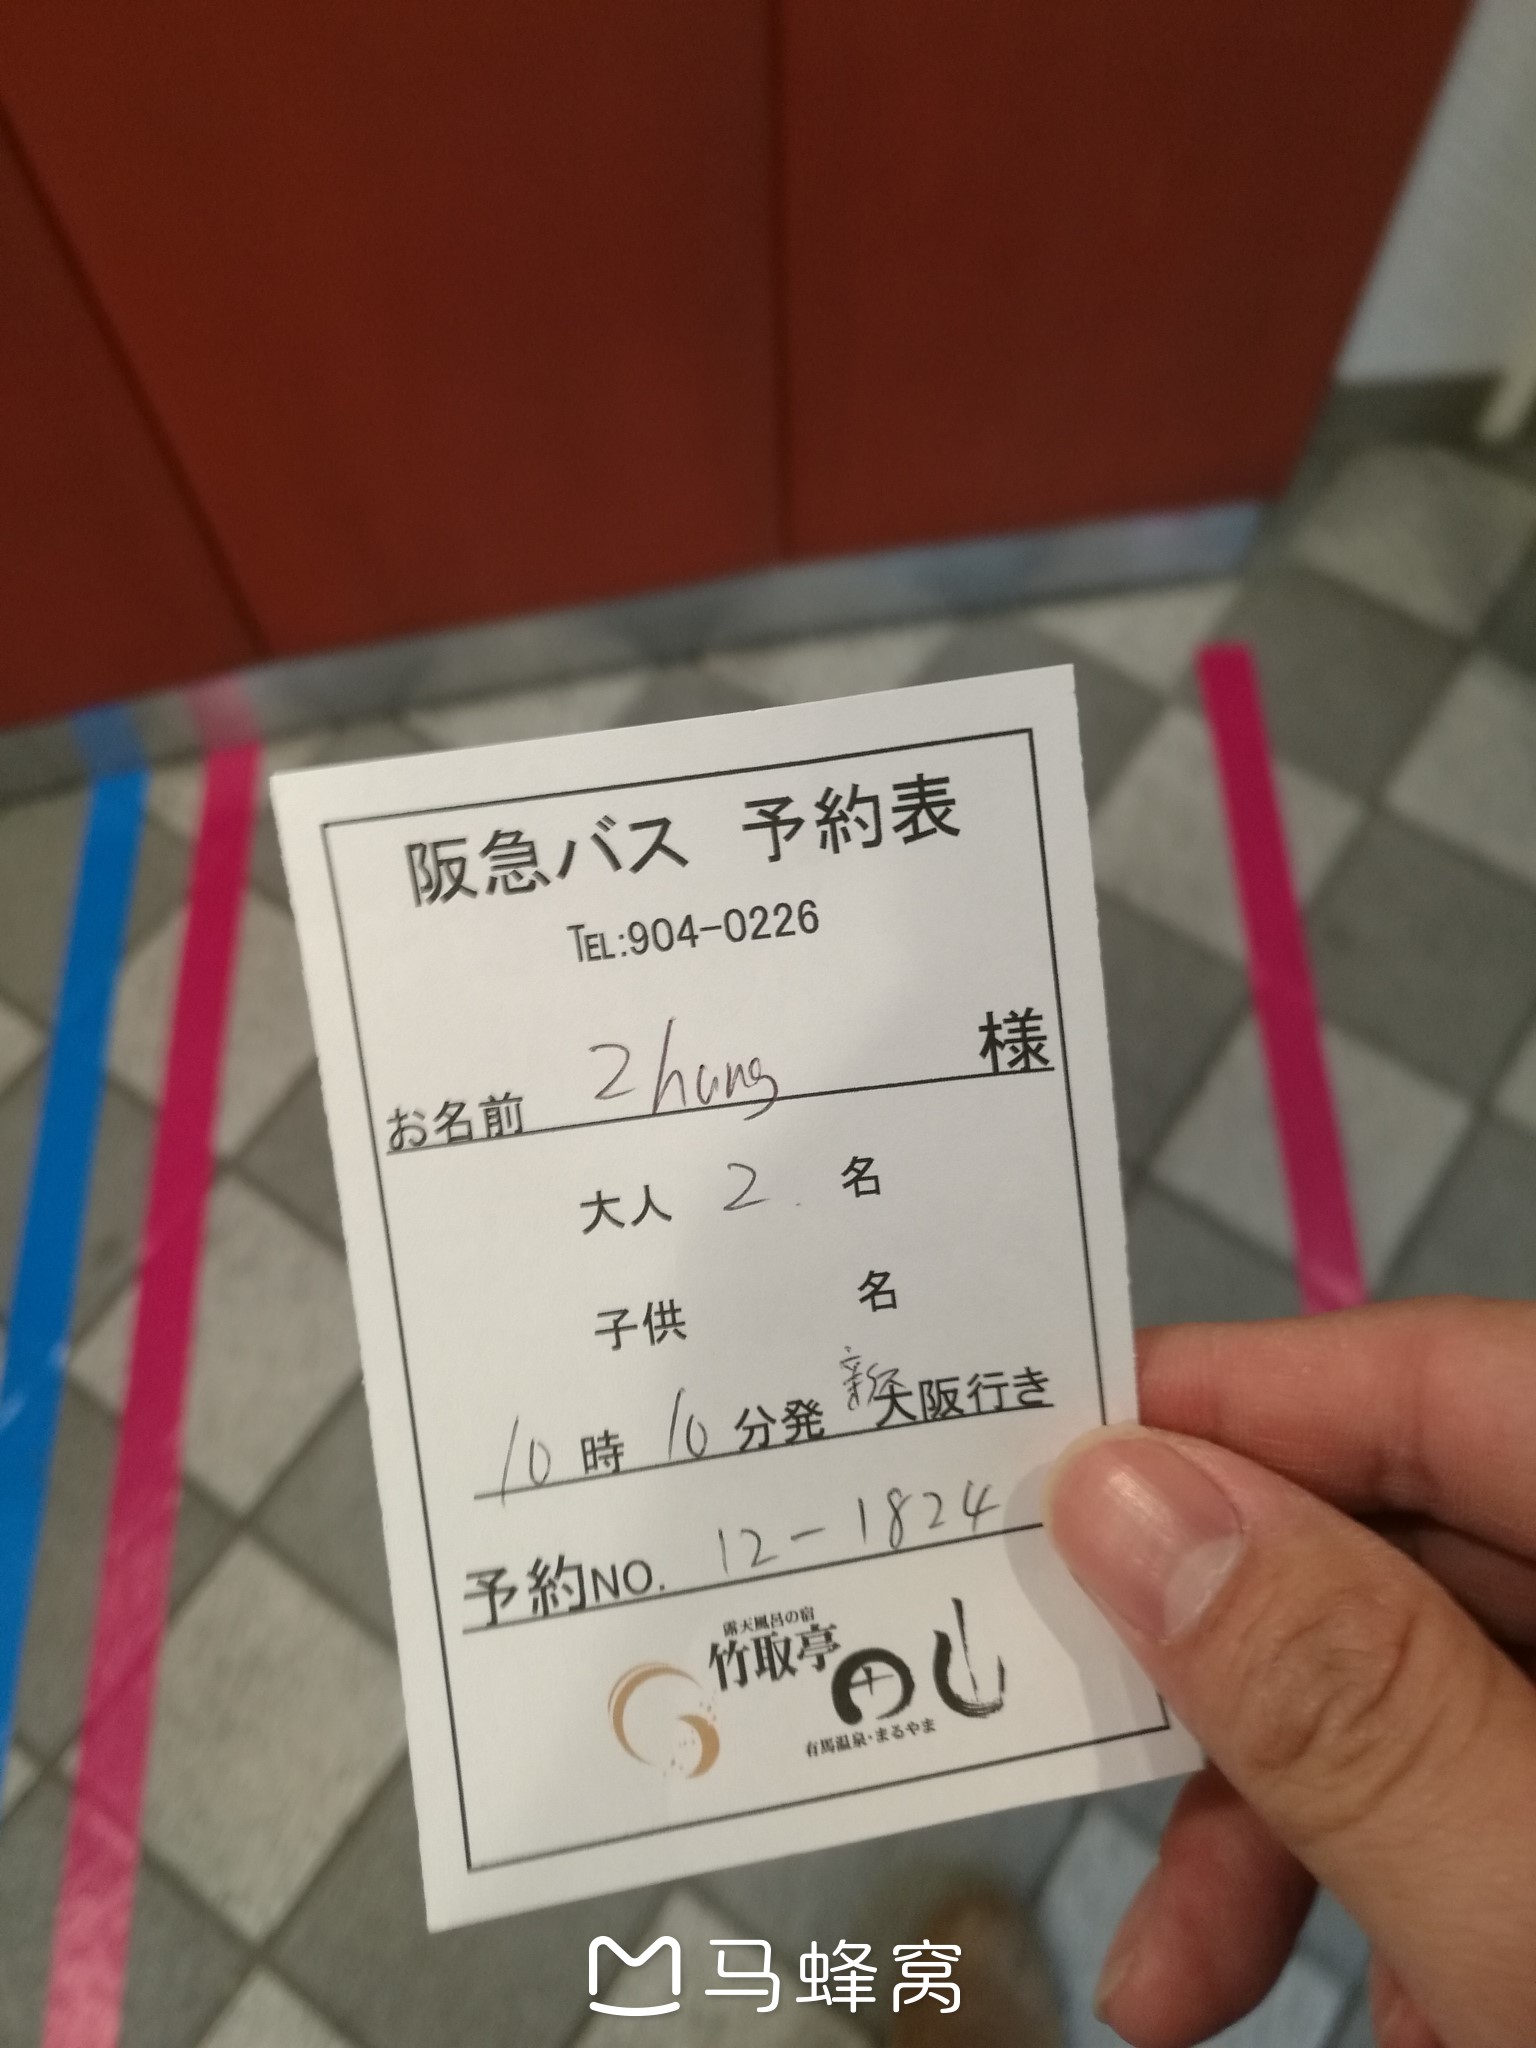 阪急バス 予約表
TEL:904-0226
お名前 Zhang 様
大人 2. 名
子供 名
10時10分発 新大阪行き
予約NO. 12-1824
露天風呂の宿
竹取亭 円山
有馬温泉・まるやま
马蜂窝